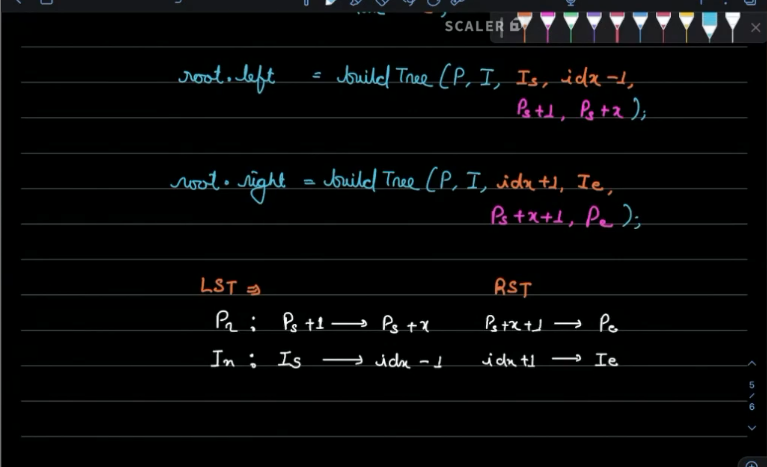 SCALER
root.left = build Tree (P, I, Is, idx-1,
Ps+1, Ps+x);
root.right = build Tree (P, I, idx+1, Ie,
Ps+x+1, Pe);
LST ⇒ RST
Pr : Ps+1 → Ps+x Ps+x+1 → Pe
In : Is → idx-1 idx+1 → Ie
5
/
6